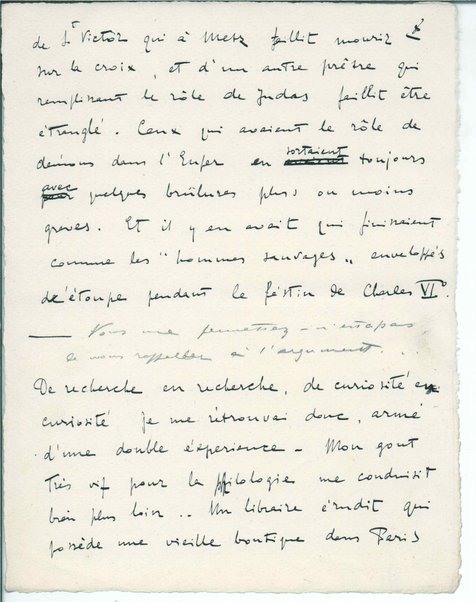 de St Victor qui à Metz faillit mouriz
sur la croix, et d'un autre prêtre qui
remplissant le rôle de Judas faillit être
étranglé. Ceux qui avaient le rôle de
démons dans l'Enfer en sortaient toujours
avec quelques brûlures plus ou moins
graves. Et il y en avait qui finissaient
comme les "hommes sauvages" enveloppés
de étoupe pendant le féstin de Charles VI°
Vous me permettez - n'est-ce pas
de vous rappeller à l'argument...
De recherche en recherche, de curiosité en
curiosité je me rétrouvai donc, armé
d'une double éxperience - Mon gout
très vif pour la philologie me conduisit
bien plus loin .. Un libraire érudit qui
possède une vieille boutique dans Paris